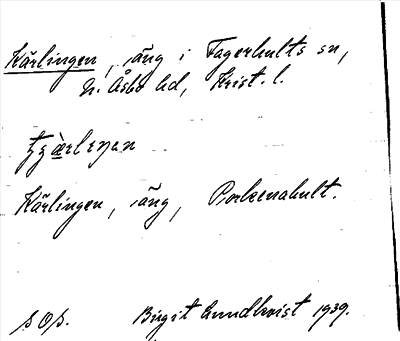 Kärlingen, äng i Fagerhults sn,
N. Åsbo hd, Krist. l.
Kärlingen, äng, Porkenahult.
S O S. Birgit Lundkvist 1939.